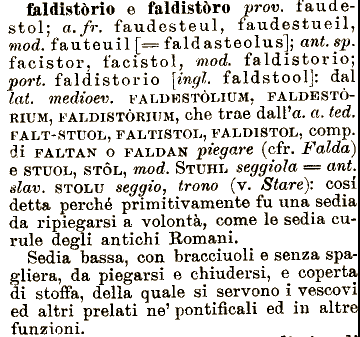 faldistòrio e faldistòro prov. faude-
stol; a. fr. faudesteul, faudestueil,
mod. fauteuil [= faldasteolus]; ant. sp.
facistor, facistol, mod. faldistorio;
port. faldistorio [ingl. faldstool]: dal
lat. medioev. FALDESTÒLIUM, FALDESTÒ-
RIUM, FALDISTÒRIUM, che trae dall'a. a. ted.
FALT-STUOL, FALTISTOL, FALDISTOL, comp.
di FALTAN o FALDAN piegare (cfr. Falda)
e STUOL, STÔL, mod. STUHL seggiola = ant.
slav. STOLU seggio, trono (v. Stare): cosí
detta perché primitivamente fu una sedia
da ripiegarsi a volontà, come le sedia cu-
rule degli antichi Romani.
Sedia bassa, con bracciuoli e senza spa-
gliera, da piegarsi e chiudersi, e coperta
di stoffa, della quale si servono i vescovi
ed altri prelati ne' pontificali ed in altre
funzioni.